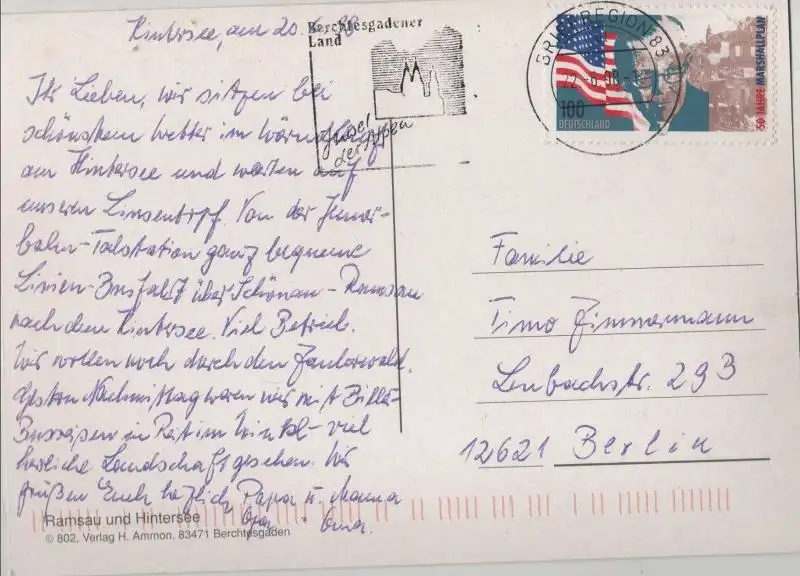 Hintersee, am 20.6.98
Ihr Lieben, wir sitzen bei
schönstem Wetter im
am Hintersee und warten auf
unseren Linsentopf. Von der Jenner-
bahn-Talstation ganz bequeme
Linien-Busfahrt über Schönau-Ramsau
nach dem Hintersee. Viel Betrieb.
Wir wollen noch durch den Zauberwald.
Gestern Nachmittag waren wir mit
Busreisen in Reit im Winkl - viel
herrliche Landschaft gesehen. Wir
grüßen Euch herzlich, Papa u. Mama
Opa - Oma.
Ramsau und Hintersee
© 802, Verlag H. Ammon, 83471 Berchtesgaden
Berchtesgadener
Land
Insel
der Alpen
BRIEFREGION 83
22.-6.98.-
100
DEUTSCHLAND
50 JAHRE MARSHALLPLAN
Familie
Timo Zimmermann
Lenbachstr. 293
12621 Berlin